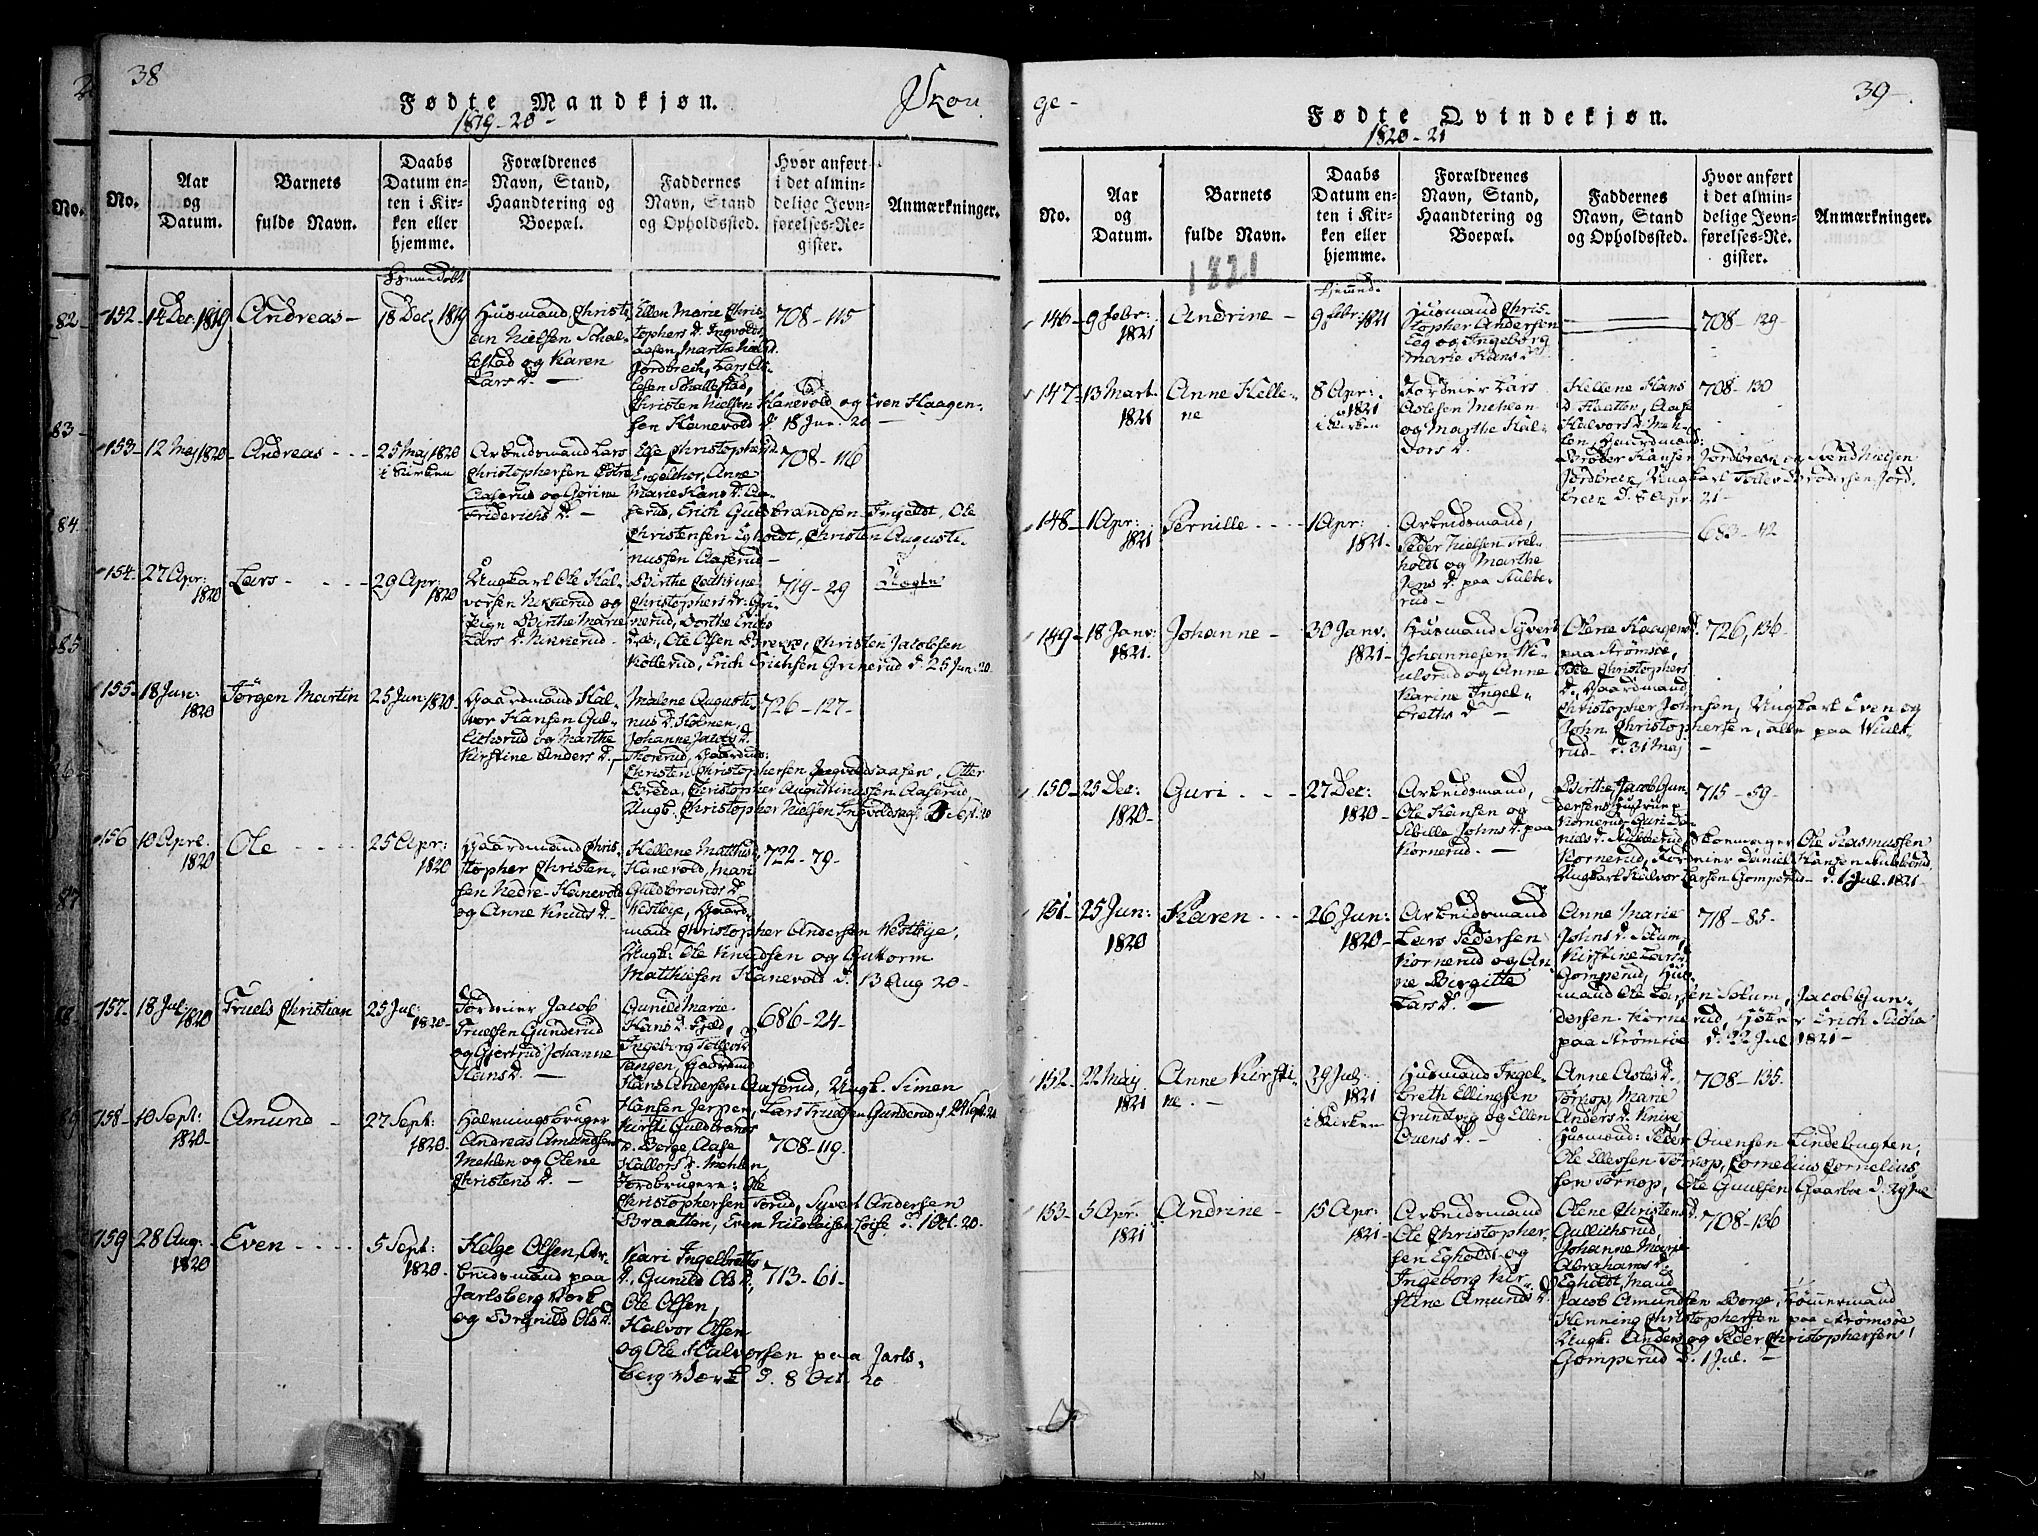 38
Fødte Mandkjøn.
1819-20-
Skou
No.
Aar
og
Datum.
Barnets
fulde Navn.
Daabs
Datum en-
ten i Kir-
ken eller
hjemme.
Forældrenes
Navn, Stand,
Haandtering og
Boepæl.
Faddernes
Navn, Stand
og Opholdssted.
Hvor anført
i det almin-
delige Jevn-
førelses-Re-
gister.
Anmærkninger.
152-
14 Dec: 1819
Andreas-
Hjemmedøbt
18 Dec 1819
Husmand Christi-
an Nielsen Schal-
lestad og Karen
Lars D. -
Ellen Marie Chris-
tophers D. Ingvolds
aasen, Marthe Niels D.
Jordbrech, Lars Ol-
lesen Schallestad,
Christen Nielsen Hanevold og Even Haagen-
sen Hanevold d. 18 Jun. 20 -
708-115
153-
12 Maj 1820-
Andreas - - -
25 Maj 1820
i Kirken
Arbeidsmand Lars
Christophersen Østre
Aaserud og Gorine
Friderichs D. -
Else Christophers D.
Engelthor, Anne
Marie Hans D. Aa-
serud, Erich Guldbrandsen Engeldt, Ole
Christensen Egholdt, Christen Augusti-
nussen Aaserud -
708-116
154-
27 Apr:
1820
Lars - - - -
29 Apr:
1820
Ungkarl Ole Hal-
vorsen Nikkerud og
Pign Birthe Marie
Lars D. Nikkerud -
Birthe Cathrine
Christophers D. Gri-
nerud, Dorthe Erichs
D. Ole Olsen Brekke, Christen Jacobsen
Kollerud, Erich Erichsen Grinerud d. 25 Jun. 20
719-29
Uægte
155-
18 Jun:
1820
Jørgen Martin
25 Jun: 1820-
Gaardmand Hal-
vor Hansen Gul-
lichsrud og Marthe
Kirstine Anders D. -
Malene Augusti-
nus D. Holmen
Johanne Jacobs D.
Thorerud, Gaardmd:
Christen Christophersen Ingvoldsaasen, Otter
Breda, Christopher Augustinussen Aaserud,
Ungk. Christopher Nielsen Ingvoldsaas. 3 Sept. 20
726-127-
156
10 April
1820
Ole - - - -
25 Apr:
1820
Gaardmand Chris-
topher Christen-
sen Nedre Hanevold
og Anne Knuds D. -
Hellene Matthis D.
Hanevold, Mari
Guldbrands D.
Westbye, Gaard-
mand Christopher Andersen Westbye,
Ungk: Ole Knudsen og Guttorm
Matthiesen Hanevold d. 13 Aug 20-
722-79-
157-
18 Jul:
1820
Truels Christian
25 Jul:
1820-
Jordeier Jacob
Truelsen Gunderud
og Gjertrud Johanne
Hans D. -
Gunild Marie
Hans D. Fjeld,
Ingeborg Tollevs D.
Tangen, Gaardmd
Hans Andersen Aaserud, Ungk. Simen
Hansen Jerpen, Lars Truelsen Gunderud d. 24 Sept. 20
686-24-
158-
10 Sept:
1820-
Amund -
27 Sept:
1820-
Halvningsbruger
Andreas Amundsen
Mehlen og Olene
Christens D. -
Kirsti Guldbrands
D. Borge, Aase
Hallvors D. Mehlen,
Jordbrugere: Ole
Christophersen Torud, Syvert Andersen
Braatten, Even Nicolaisen Loise d. 1 Oct. 20-
708-119-
159
28 Aug:
1820
Even - - - -
5 Sept:
1820-
Helge Olsen, Ar-
beidsmand paa
Jarlsberg Værk
og Brynild Ols D.
Kari Ingelbreths
D. Gunild Ols D.,
Ole Olsen,
Halvor Olsen
og Ole Halvorsen paa Jarls-
berg Værk d. 8 Oct. 20
713-61-
No.
82
83
84
85
86
87
88
89
ge-
39-
Fødte Qvindekjøn.
1820-21
No.
Aar
og
Datum.
Barnets
fulde Navn.
Daabs
Datum en-
ten i Kir-
ken eller
hjemme.
Forældrenes
Navn, Stand,
Haandtering og
Boepæl.
Faddernes
Navn, Stand
og Opholdssted.
Hvor anført
i det almin-
delige Jevn-
førelses-Re-
gister.
Anmærkninger.
1821
146-
9 Febr:
1821
Andrine -
Hjemmed.
9 Febr: 1821
Husmand Chris-
topher Andersen
Eeg og Ingeborg
Marie Hans D.
708-129
147-
13 Mart.
1821
Anne Helle-
ne
8 Apr:
1821
i Kirken
Jordeier Lars
Aslesen Mehlen
og Marthe Hal-
vors D.
Hellene Hans
D. Haatten, Aase
Halvors D. Meh-
len, Gaardmænd:
Brøder Hansen Jordbrech og Svend Nielsen
Jordbreck, Ungkarl Peder Brodersen Jord-
breck d. 8 Apr. 21-
708-130
148-
1 Apr:
1821
Pernille - - -
1 Apr:
1821-
Arbeidsmand,
Peder Nielsen Frel-
holdt og Marthe
Jens D. paa Kulbe-
rud -
683-42
149-
18 Janv:
1821.
Johanne -
30 Janv.
1821-
Husmand Syvert
Johannesen Wi-
ulsrud og Anne
Karine Ingel-
breths D. -
Olene Haagens D.
paa Strømsøe,
Christophers
D., Gaardmand
Christopher Johnsen, Ungkarl Even og
John Christophersen, alle paa Wiuls-
rud - d. 31 Maj -
726, 136-
150-
25 Dec:
1820-
Guri - - -
27 Dec:
1820-
Arbeidsmand,
Ole Hansen og
Sibille Johns D. paa
Kornerud. -
Birthe, Jacob Gun-
dersens Hustrue p.
Kornerud, Guri Da-
niels D. Kulberud, Skovvager Ole Rasmussen
Kornerud, Jordeier Daniel Hansen Kulberud,
Ungkarl Halvor Larsen Gomperud - d. 1 Jul. 1821-
715-59-
151-
25 Jun:
1820
Karen - - -
26 Jun:
1820-
Arbeidsmand
Lars Pedersen
Kornerud og An-
ne Birgitte
Lars D. -
Anne Marie
Johns D. Solum,
Kirstine Lars D.
Gomperud, Hus-
mand Ole Larsen Solum, Jacob Gun-
dersen Kornerud, Erich Micha
paa Strømsøe d. 22 Jul 1821-
718-85-
152-
22 Maj
1821
Anne Kirsti-
ne. -
29 Jul:
1821
i Kirken
Husmand Ingel-
breth Ellingsen
Grundvig og Ellen
Ouens D. -
Anne Asles D.
Torkop, Mari
Anders D. Knive
Husmænd: Peder Ouensen Lindebugten,
Ole Ellevsen Torkop, Cornelius Cornelius-
sen Torkop, Ole Gulsen Gaarbo d. 29 Jul
708-135
153-
5 Apr.
1821
Andrine -
15 Apr:
1821-
Arbeidsmand
Ole Christopher-
sen Egholdt og
Ingeborg Kir-
stine Amunds D.
Olene Christens D.
Gullichsrud,
Johanne Marie
Abrahams D.
Egholdt, Maud
Jacob Amundsen Borge, Tømmermand
Henning Christophersen paa Strømsøe
Ungk. Anders og Peder Christophersen
Gomperud d. 1 Jul. -
708-136